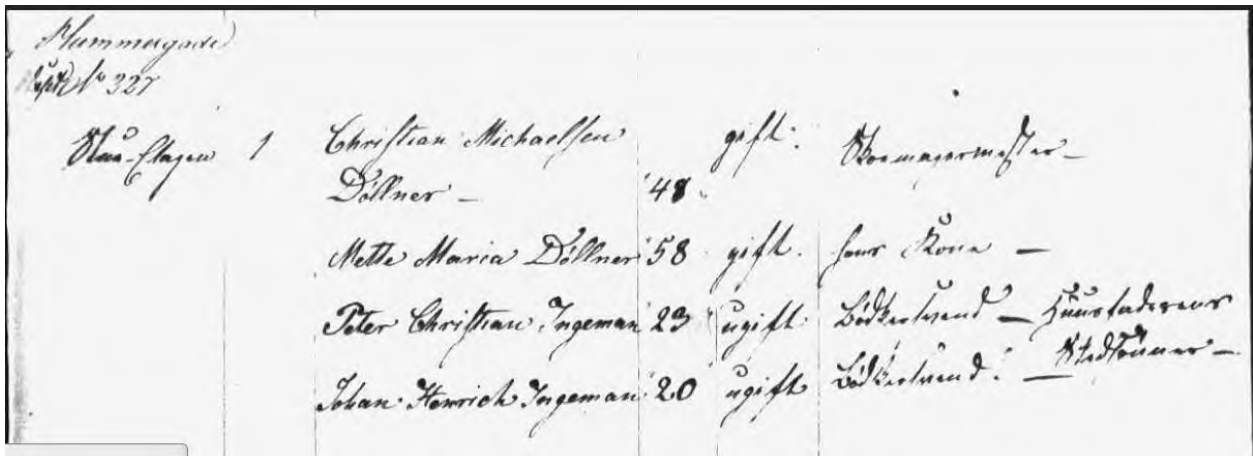 Hummergade
No 327
Stue-Etagen 1 Christian Michaelsen gift. Skomagermester -
Döllner - 48.
Mette Maria Döllner 58 gift. hans Kone -
Peter Christian Ingeman 23 ugift. Bödkersvend - Huusfaderens
Johan Henrich Ingeman 20 ugift Bödkersvend. - Stedsönner -